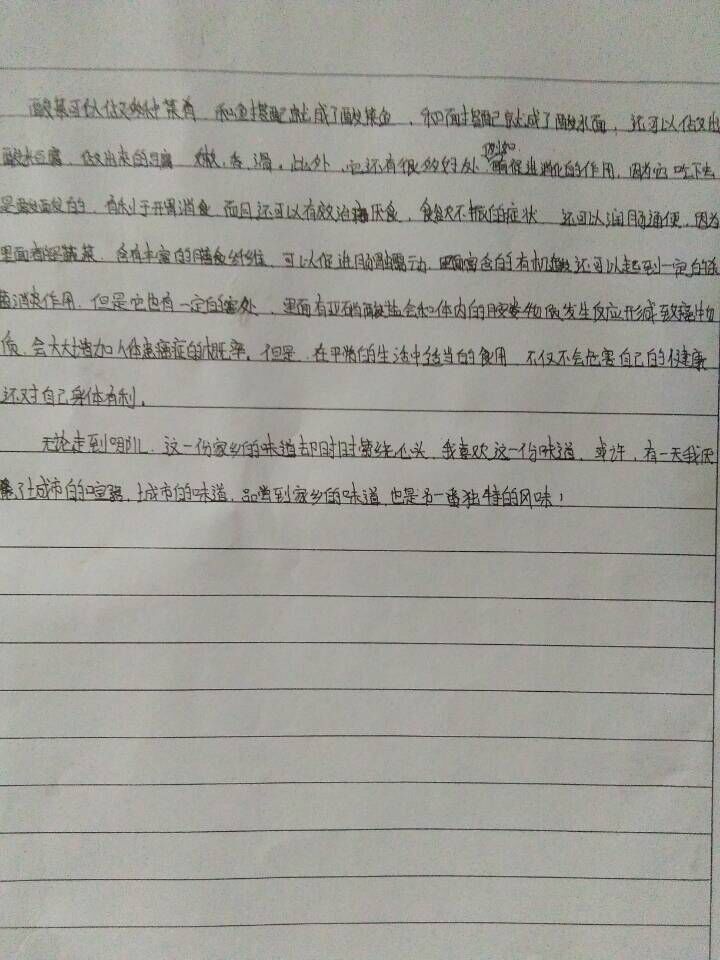 酸菜可以做成多种菜肴，和鱼搭配就成了酸菜鱼，和面搭配就成了酸水面，还可以做出
酸水豆腐，做出来的豆腐 嫩、香、滑，此外，它还有很多好处，例如 能促进消化的作用，因为它吃下去
是酸酸的，有利于开胃消食 而且还可以有效治疗厌食，食欲不振的症状 还可以润肠通便，因为
里面都是蔬菜，含有丰富的膳食纤维，可以促进肠胃蠕动，里面富含的有机酸还可以起到一定的杀
菌消炎作用，但是它也有一定的害处，里面有亚硝酸盐会和体内的胺类物质发生反应形成致癌生物
质，会大大增加人体患癌症的概率。但是，在平常的生活中适当的食用 不仅不会危害自己的健康
还对自己身体有利。
无论走到哪儿，这一份家乡的味道却时时萦绕心头，我喜欢这一份味道，或许，有一天我厌
倦了城市的喧嚣，城市的味道，品尝到家乡的味道 也是另一番独特的风味！